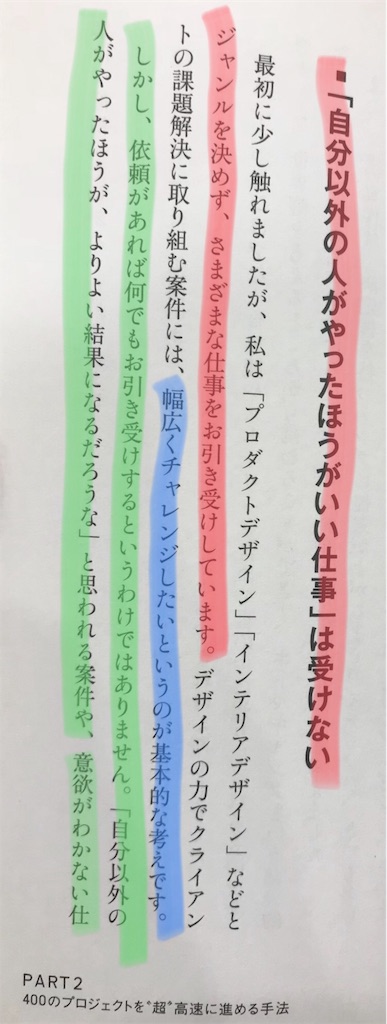 ▪「自分以外の人がやったほうがいい仕事」は受けない
最初に少し触れましたが、私は「プロダクトデザイン」「インテリアデザイン」などと
ジャンルを決めず、さまざまな仕事をお引き受けしています。デザインの力でクライアン
トの課題解決に取り組む案件には、幅広くチャレンジしたいというのが基本的な考えです。
しかし、依頼があれば何でもお引き受けするというわけではありません。「自分以外の
人がやったほうが、よりよい結果になるだろうな」と思われる案件や、意欲がわかない仕
PART2
400のプロジェクトを“超”高速に進める手法